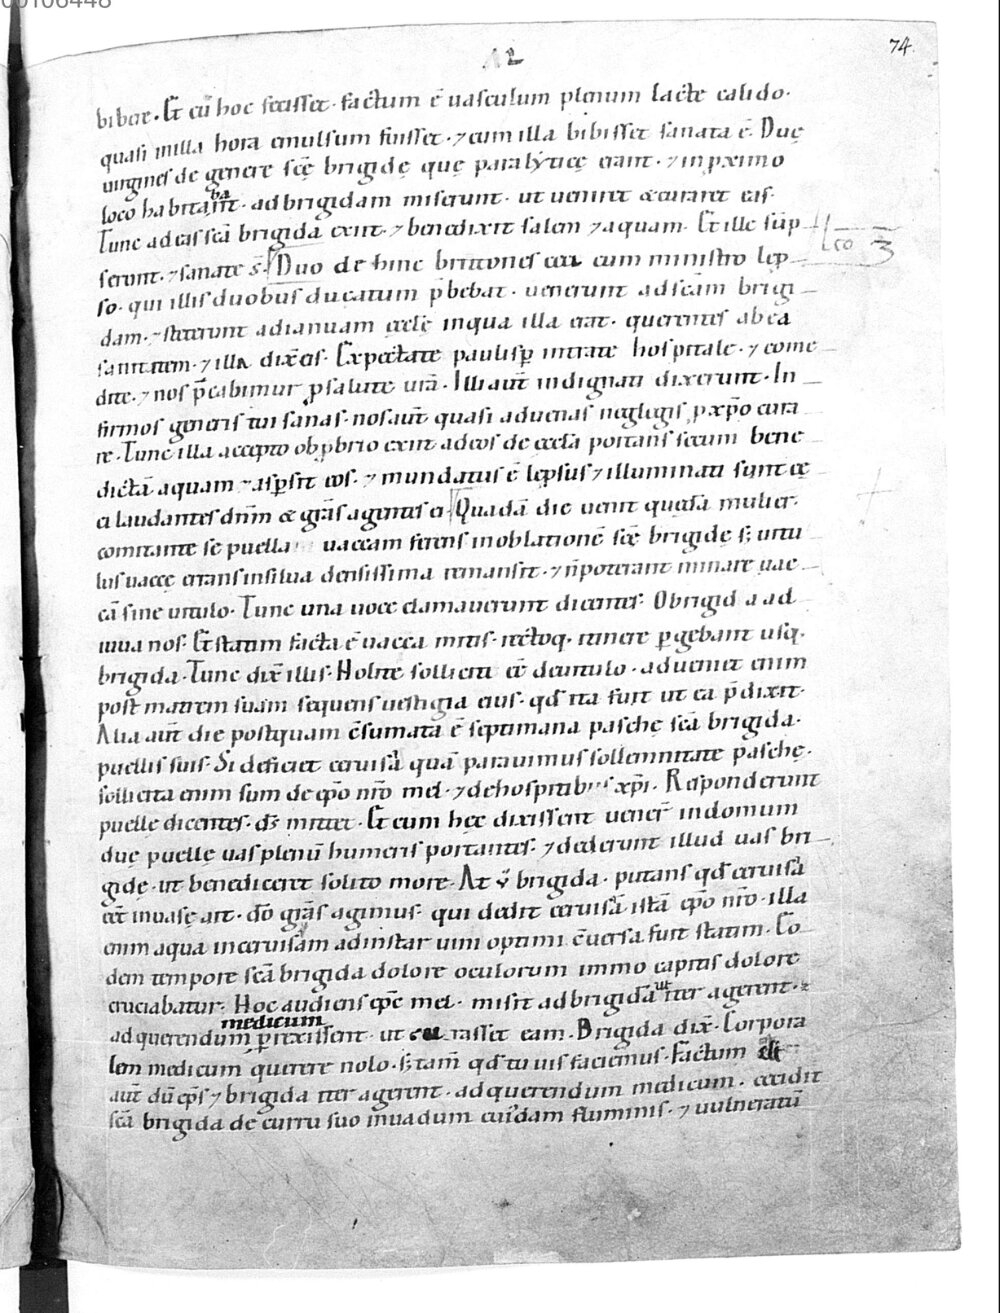 00106448
74
12
bibere. Et cū hoc fecisset. factum ē uasculum plenum lacte calido.
quasi in illa hora emulsum fuisset. ⁊ cum illa bibisset sanata ē. Duę
uirgines de genere scę̄ brigidę quę paralyticę erant. ⁊ in p̱ximo
loco habitabant. ad brigidam miserunt. ut ueniret & curaret eas.
Tunc ad eas scā brigida exiit. ⁊ benedixit salem ⁊ aquam. Et ille sūp
serunt. ⁊ sanate s̄. Duo de hinc brittones ceci cum ministro lep
so. qui illis duobus ducatum p̄bebat. uenerunt ad scām brigi
dam. ⁊ steterunt ad ianuam ęcclę in qua illa erat. querentes ab ea
sanitatem. ⁊ illa dix̄ eis. Expectate paulisp̱ intrate hospitale. ⁊ come
dite. ⁊ nos p̄cabimur p̱ salute urā. Illi aut̄ indignati dixerunt. In
firmos generis tui sanas. nos aut̄ quasi aduenas neglegis p̱ xp̄o cura
re. Tunc illa accepto obp̱brio exiit ad eos de ęcclā portans secum bene
dictā aquam ⁊ asp̱sit eos. ⁊ mundatus ē lepsus ⁊ illuminati sunt cę
ci laudantes dnm̄ & grās agentes ei. Quadā die uenit quędā mulier.
comitante se puella uaccam ferens in oblationē scę̄ brigidę s; uitu
lus uaccę errans in silua densissima remansit. ⁊ n̄ poterant minare uac
cā sine uitulo. Tunc una uoce clamauerunt dicentes. O brigida ad
iuua nos. Et statim facta ē uacca mitis. rectoq. itinere p̱gebant usq.
brigida. Tunc dix̄ illis. Nolite solliciti eē de uitulo. adueniet enim
post matrem suam sequens uestigia eius. qd̄ ita fuit ut ea p̄dixit.
Alia aut̄ die postquam cōsumata ē septimana paschę scā brigida.
puellis suis. Si deficiet ceruisā quā parauimus sollemnitate paschę.
sollicita enim sum de ep̄o nrō mel. ⁊ de hospitibus xp̄i. Responderunt
puelle dicentes. ds̄ mittet. Et cum hęc dixissent uener̄ in domum
duę puellę uas plenū humeris portantes. ⁊ dederunt illud uas bri
gidę. ut benediceret solito more. At ū brigida. putans qd̄ ceruisā
eēt in uase ait. dō grās agimus. qui dedit ceruisā istā ep̄o nrō. illa
enim aqua in ceruisām ad instar uini optimi cōuersa fuit statim. Eo
dem tempore scā brigida dolore oculorum immo capitis dolore
cruciabatur. Hoc audiens ep̄c mel. misit ad brigidā ut iter agerent.
ad querendum medicum p̱rexissent. ut curasset eam. Brigida dix̄. Corpora
lem medicum querere nolo. s; tam̄ qd̄ tu uis faciemus. Factum est
aut̄ dū ep̄s ⁊ brigida iter agerent. ad querendum medicum. cecidit
scā brigida de curru suo in uadum cuiusdam fluminis. ⁊ uulneratū